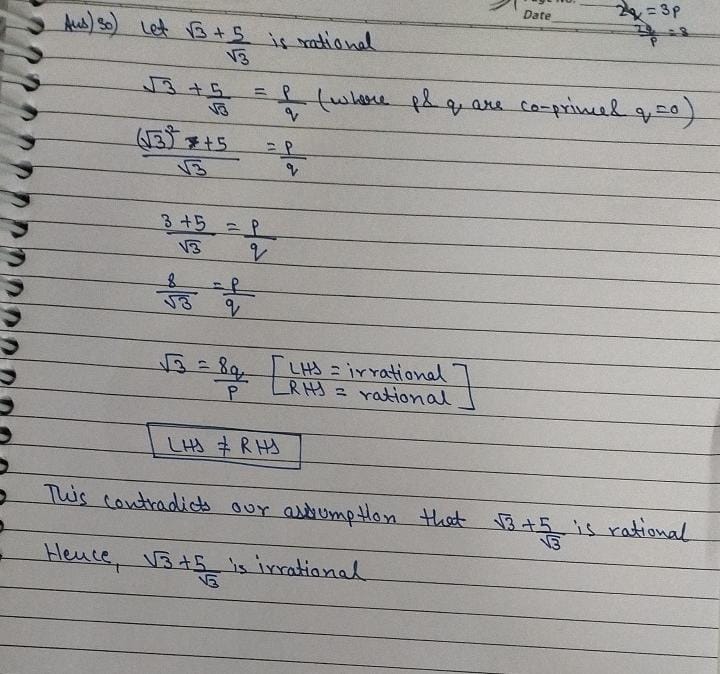 Date
2q = 3p
Ans) 30) Let √3 + 5/√3 is rational
√3 + 5/√3 = p/q (where p & q are co-prime & q = 0)
(√3)² + 5 / √3 = p/q
3 + 5 / √3 = p/q
8/√3 = p/q
√3 = 8q/p [LHS = irrational
RHS = rational]
LHS ≠ RHS
This contradicts our assumption that √3 + 5/√3 is rational
Hence, √3 + 5/√3 is irrational